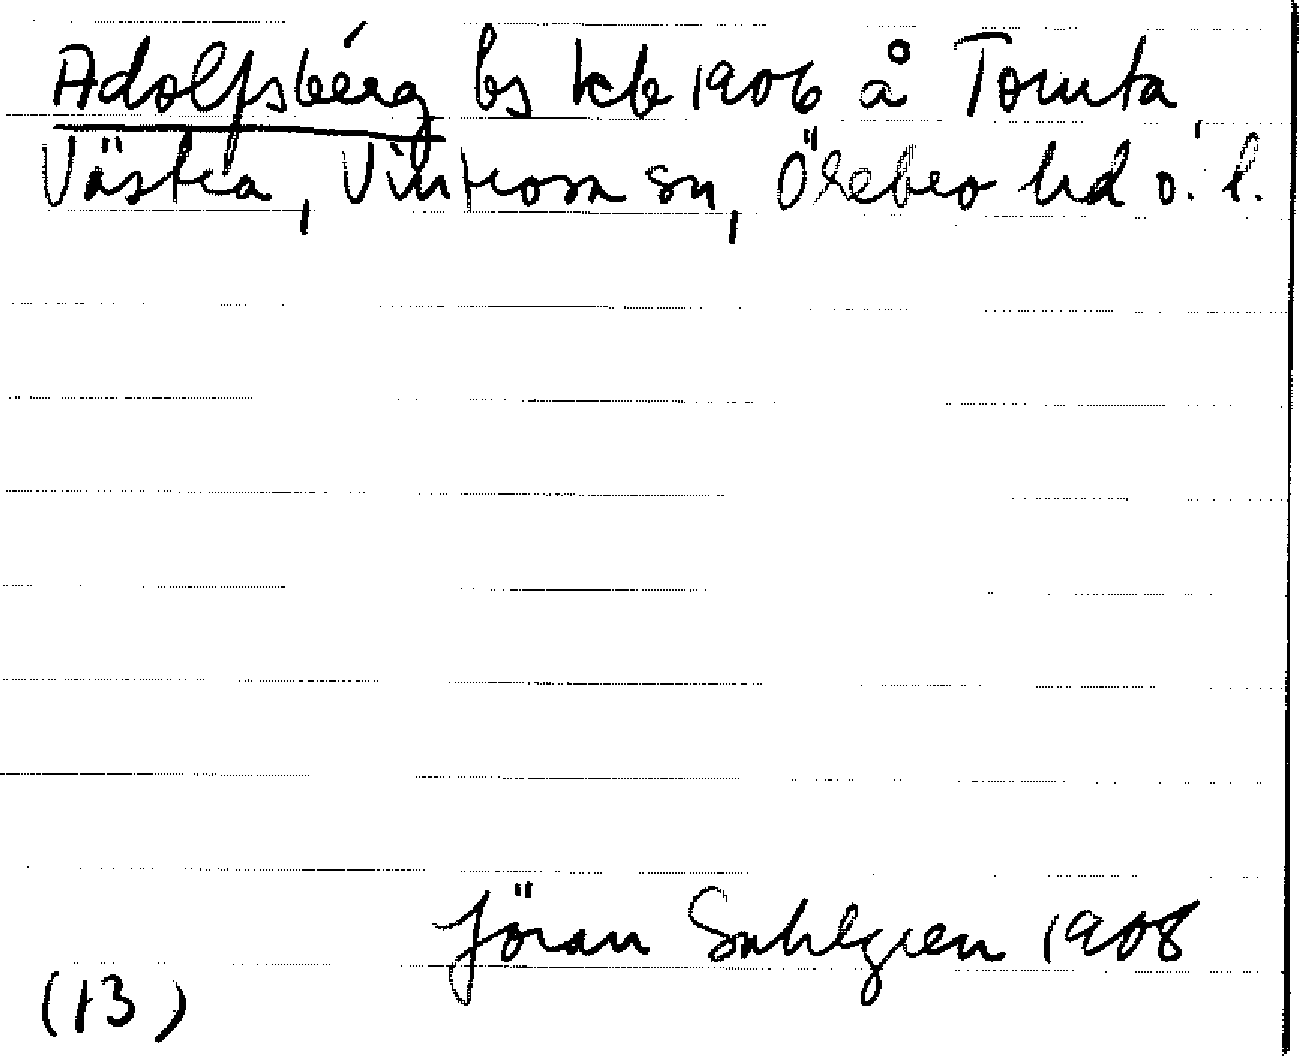 Adolfsbérg bs kb 1906 å Tomta
Västra, Vintrosa sn, Örebro hd ö. l.
Jöran Sahlgren 1908
(13)